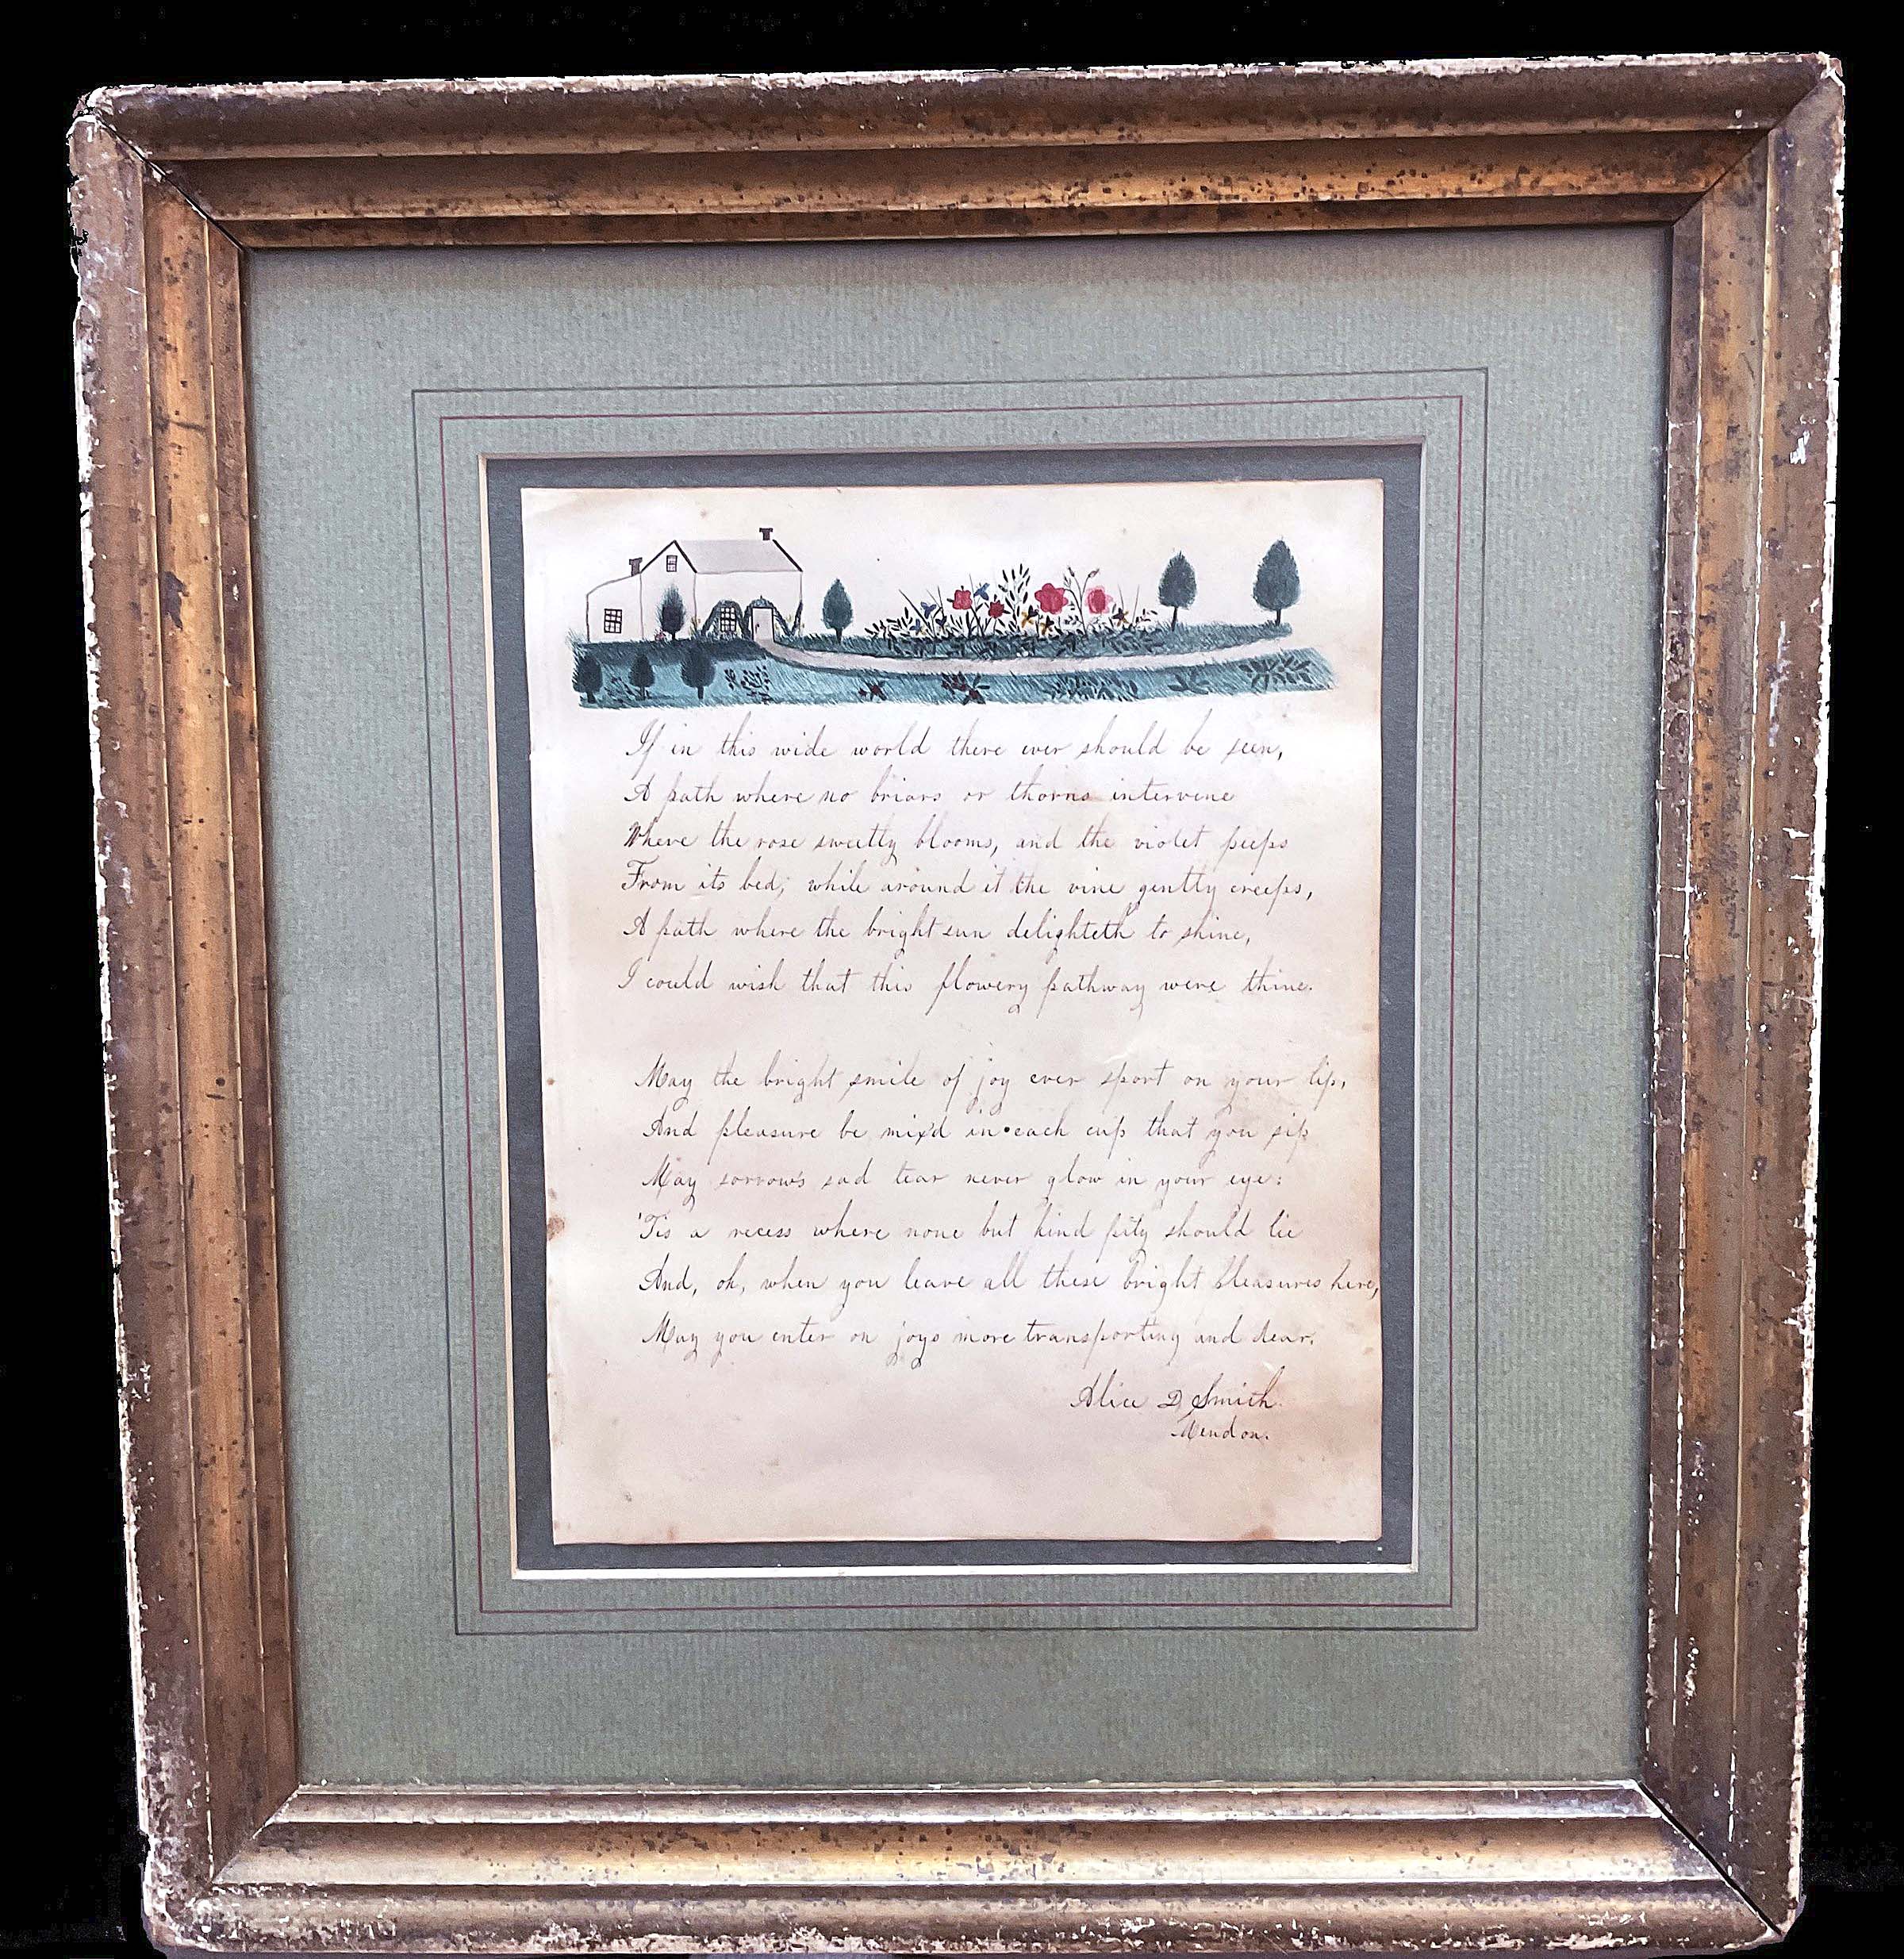 If in this wide world there ever should be seen,
A path where no briars or thorns intervene
Where the rose sweetly blooms, and the violet peeps
From its bed; while around it the vine gently creeps,
A path where the bright sun delighteth to shine,
I could wish that this flowery pathway were thine.
May the bright smile of joy ever sport on your lip,
And pleasure be mix'd in each cup that you sip
May sorrow's sad tear never glow in your eye:
'Tis a recess where none but kind pity should lie
And, oh, when you leave all these bright pleasures here,
May you enter on joys more transporting and dear.
Alice D Smith
Mendon.